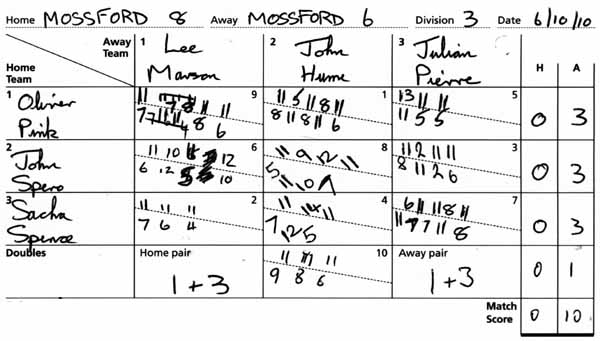 Home MOSSFORD 8 Away MOSSFORD 6 Division 3 Date 6/10/10
Away Team
Home Team
1 Lee Marson
2 John Hume
3 Julian Pierre
H A
1 Oliver Pink
9
11 11
8 6
1
11 5 11 8 11
8 11 8 11 6
5
13 11 11
11 5 5
0 3
2 John Spero
6
11 10 12
6 12 10
8
11 9 12 11
5 11 10 7
3
11 2 11 11
8 11 2 6
0 3
3 Sacha Spence
2
11 11 11
7 6 4
4
11 14 11
7 12 5
7
6 11 11 8 11
11 7 7 11 8
0 3
Doubles
Home pair
1+3
10
11 11 11
9 8 6
Away pair
1+3
0 1
Match Score
0 10